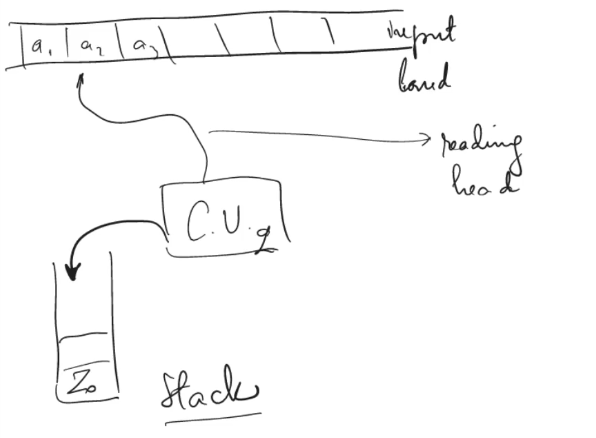 a₁ a₂ a₃ input
band
reading
head
C.U. q
Z₀
Stack